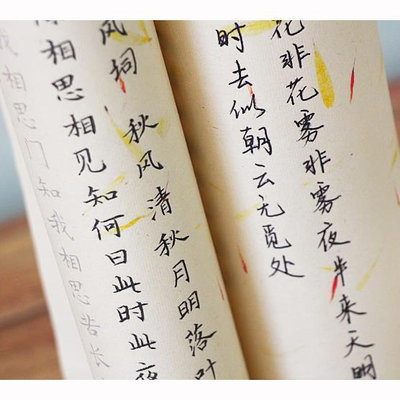 花非花雾非雾夜半来天明
时去似朝云无觅处
风词 秋风清秋月明落叶
相思相见知何日此时此夜
我相思门知我相思苦长